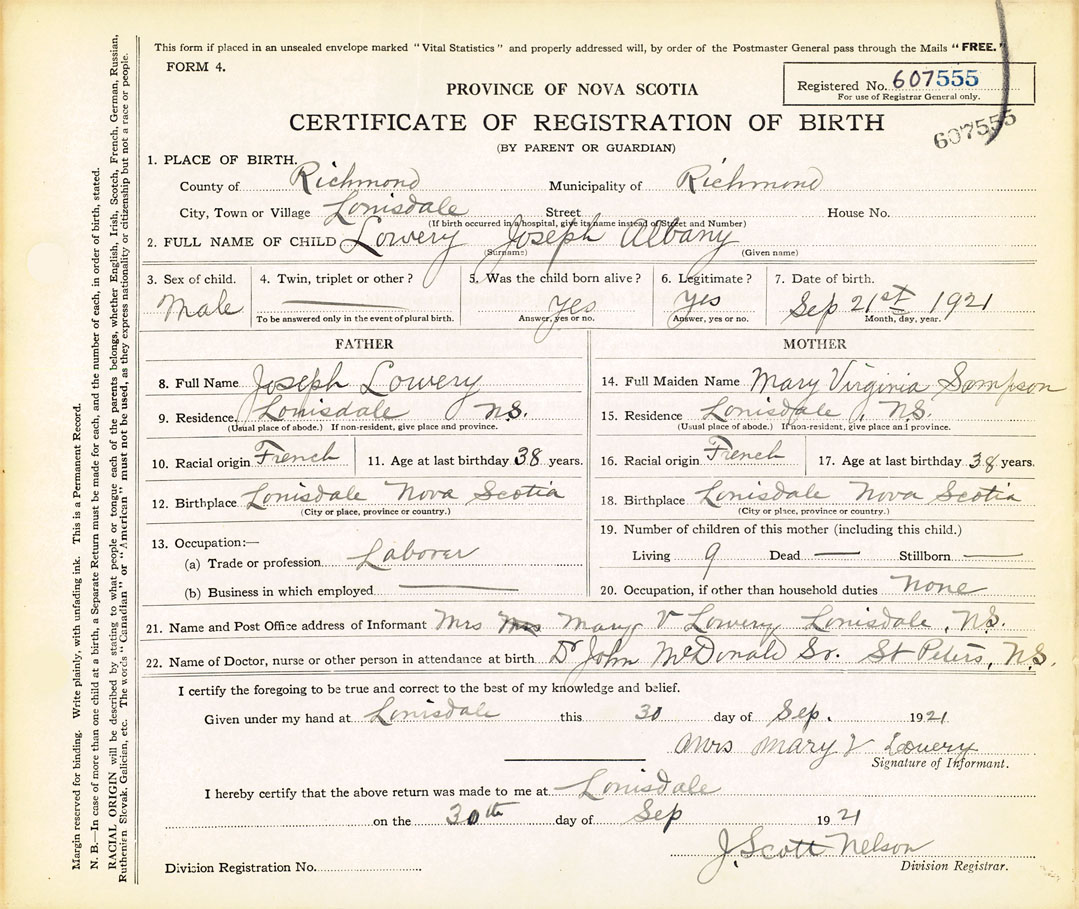 This form if placed in an unsealed envelope marked "Vital Statistics" and properly addressed will, by order of the Postmaster General pass through the Mails "FREE."
FORM 4.
PROVINCE OF NOVA SCOTIA
Registered No. 607555
For use of Registrar General only.
CERTIFICATE OF REGISTRATION OF BIRTH
607555
(BY PARENT OR GUARDIAN)
1. PLACE OF BIRTH.
County of Richmond Municipality of Richmond
City, Town or Village Louisdale Street House No.
(If birth occurred in a hospital, give its name instead of Street and Number)
2. FULL NAME OF CHILD Lowery Joseph Albany
(Surname) (Given name)
3. Sex of child. 4. Twin, triplet or other? 5. Was the child born alive? 6. Legitimate? 7. Date of birth.
Male Yes Yes Sep 21st 1921
To be answered only in the event of plural birth. Answer, yes or no. Answer, yes or no. Month, day, year.
FATHER MOTHER
8. Full Name Joseph Lowery 14. Full Maiden Name Mary Virginia Sampson
9. Residence. Louisdale N.S. 15. Residence Louisdale, N.S.
(Usual place of abode.) If non-resident, give place and province. (Usual place of abode.) If non-resident, give place and province.
10. Racial origin French 11. Age at last birthday 38 years. 16. Racial origin French 17. Age at last birthday 38 years.
12. Birthplace Louisdale Nova Scotia 18. Birthplace Louisdale Nova Scotia
(City or place, province or country.) (City or place, province or country.)
13. Occupation:— 19. Number of children of this mother (including this child.)
(a) Trade or profession Laborer Living 9 Dead — Stillborn —
(b) Business in which employed — 20. Occupation, if other than household duties None
21. Name and Post Office address of Informant Mrs Mrs Mary V Lowery Louisdale, N.S.
22. Name of Doctor, nurse or other person in attendance at birth Dr John McDonald Sr. St Peters, N.S.
I certify the foregoing to be true and correct to the best of my knowledge and belief.
Given under my hand at Louisdale this 30 day of Sep. 1921
Mrs Mary V Lowery
Signature of Informant.
I hereby certify that the above return was made to me at Louisdale
on the 30th day of Sep 1921
J. Scott Nelson
Division Registration No. Division Registrar.
Margin reserved for binding. Write plainly, with unfading ink. This is a Permanent Record.
N. B.—In case of more than one child at a birth, a Separate Return must be made for each, and the number of each, in order of birth, stated.
RACIAL ORIGIN will be described by stating to what people or tongue each of the parents belongs, whether English, Irish, Scotch, French, German, Russian,
Ruthenian Slovak, Galician, etc. The words "Canadian" or "American" must not be used, as they express nationality or citizenship but not a race or people.